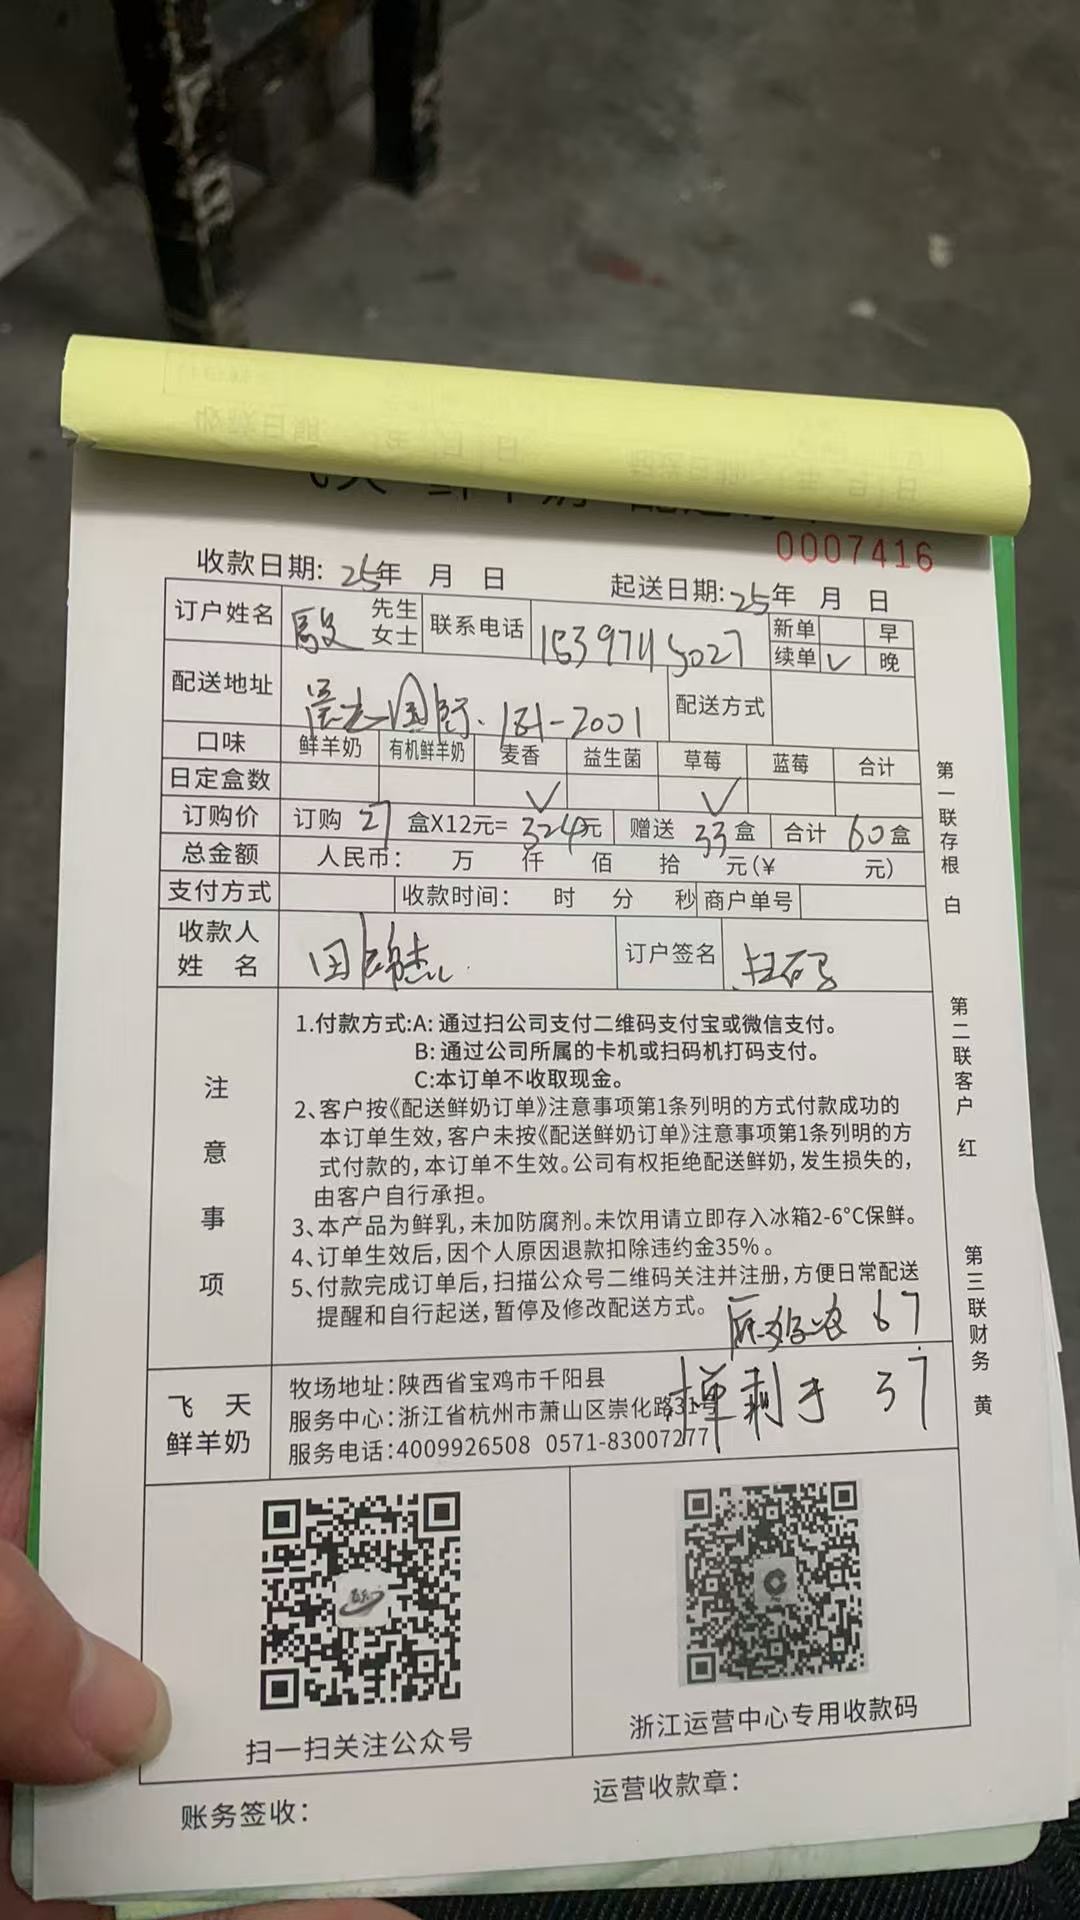 0007416
收款日期: 25年 月 日 起送日期: 25年 月 日
订户姓名 先生 女士 联系电话 15397115027 新单 早
续单 ✓ 晚
配送地址 国际·1号1-2001 配送方式
口味 鲜羊奶 有机鲜羊奶 麦香 益生菌 草莓 蓝莓 合计
日定盒数 ✓ ✓
订购价 订购 27 盒X12元= 324元 赠送 33 盒 合计 60 盒
总金额 人民币: 万 仟 佰 拾 元(¥ 元)
支付方式 收款时间: 时 分 秒 商户单号
收款人姓名 田锦杰 订户签名 扫码
注意事项
1.付款方式:A: 通过扫公司支付二维码支付宝或微信支付。
B: 通过公司所属的卡机或扫码机打码支付。
C:本订单不收取现金。
2、客户按《配送鲜奶订单》注意事项第1条列明的方式付款成功的
本订单生效,客户未按《配送鲜奶订单》注意事项第1条列明的方
式付款的,本订单不生效。公司有权拒绝配送鲜奶,发生损失的,
由客户自行承担。
3、本产品为鲜乳,未加防腐剂。未饮用请立即存入冰箱2-6°C保鲜。
4、订单生效后,因个人原因退款扣除违约金35%。
5、付款完成订单后,扫描公众号二维码关注并注册,方便日常配送
提醒和自行起送,暂停及修改配送方式。
67
单剩于 37
飞天鲜羊奶
牧场地址:陕西省宝鸡市千阳县
服务中心:浙江省杭州市萧山区崇化路31号
服务电话:4009926508 0571-83007277
扫一扫关注公众号
浙江运营中心专用收款码
账务签收:
运营收款章:
第一联存根 白
第二联客户 红
第三联财务 黄